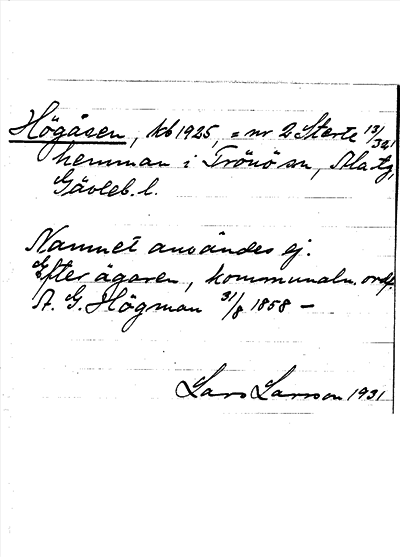 Högåsen, kb 1925, = nr 2 Sterte 13/32
hemman i Trönö sn, Ala tg,
Gävleb. l.
Namnet användes ej.
Efter ägaren, kommunaln. ordf.
A. G. Högman 31/8 1858 –
Lars Larsson 1931